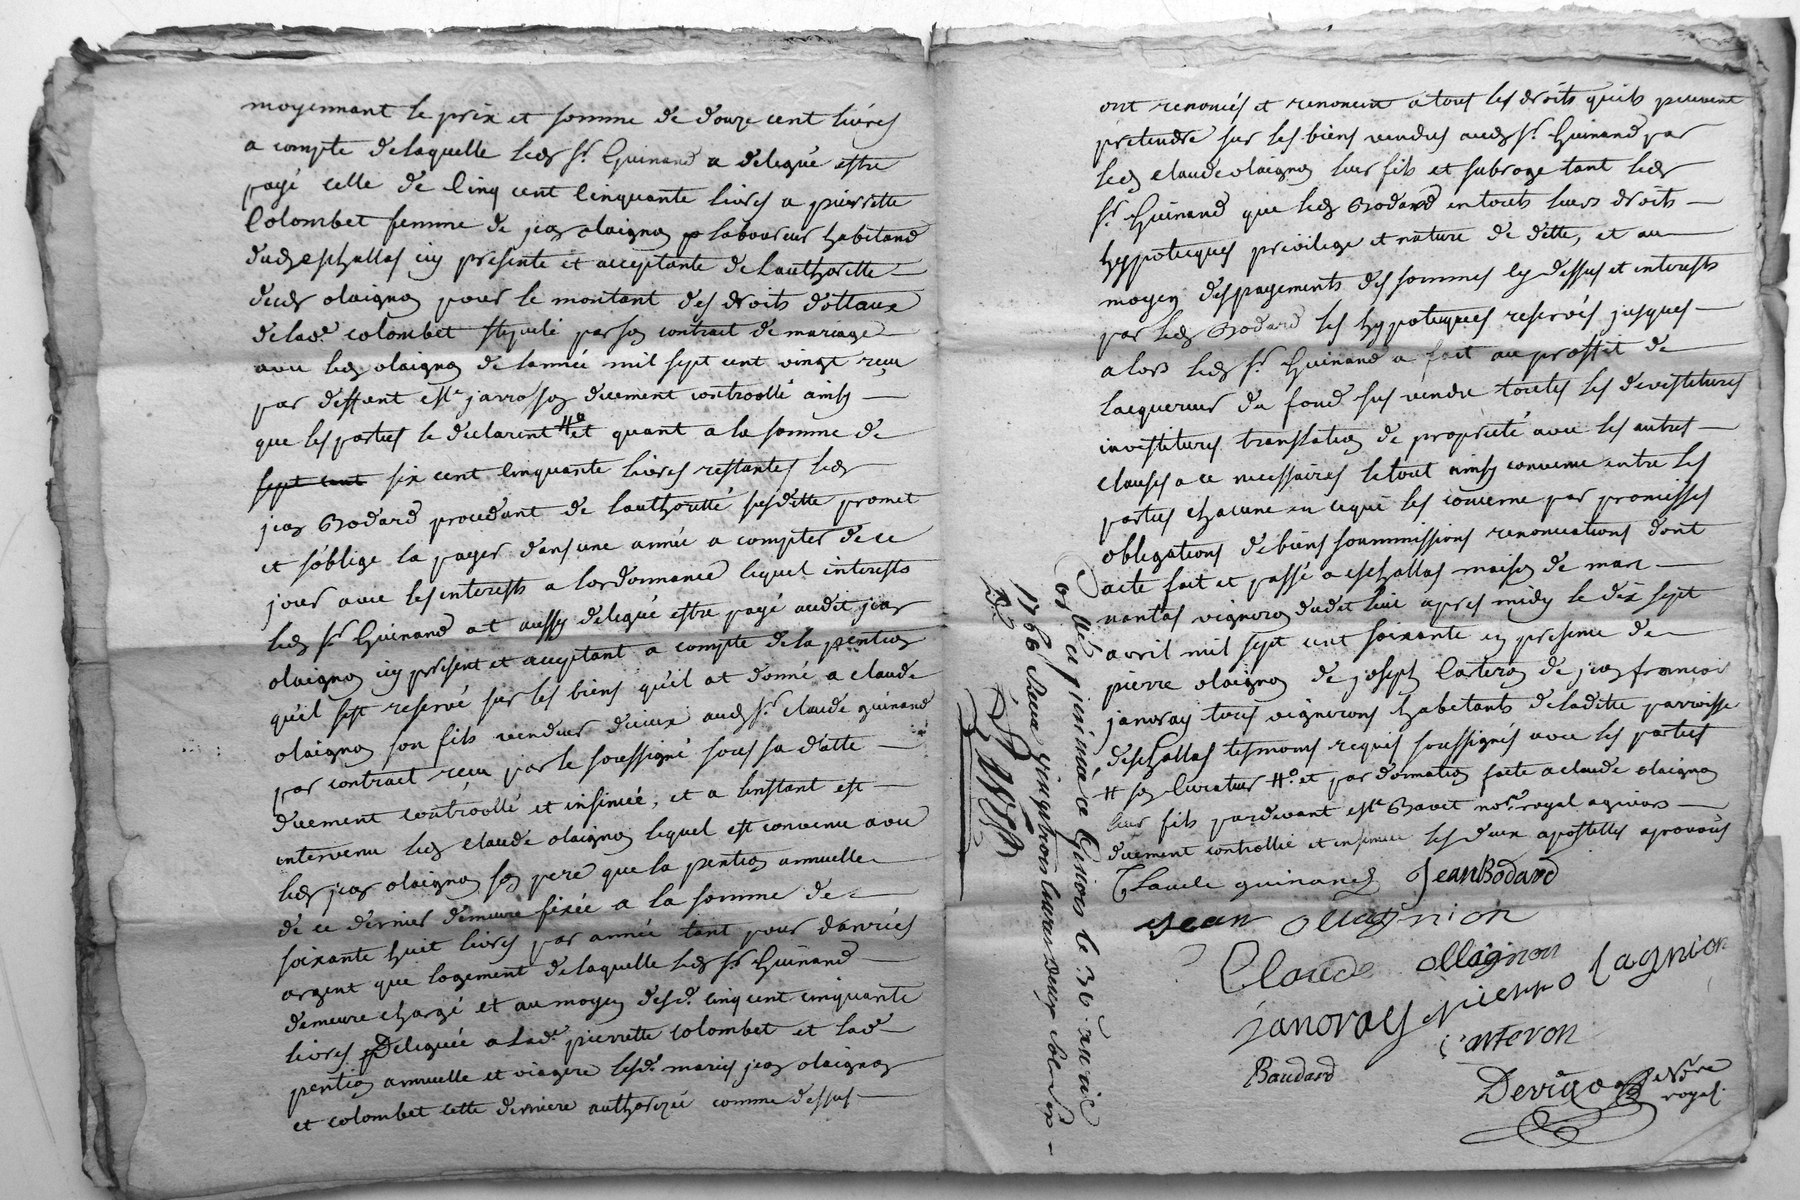 moyennant le prix et somme de douze cent livres
a compte de laquelle led sr. Guinand a delegué estre
payé celle de Cinq cent Cinquante livres a pierrette
Colombet femme de jean olaignon laboureur habitand
dud eschallas icy presente et acceptante de lauthorette
dud olaignon pour le montant des droits dottaux
de lade. colombet stipulé par son contrat de mariage
avec led olaignon de lannée mil sept cent vingt reçu
par deffunt me. jarrosson duement controollé ainsy
que les parties le declarent #o et quant a la somme de
sept cent six cent cinquante livres restantes led
jean Bodard procedant de lauthorité susditte promet
et soblige la payer dans une année a compter de ce
jour avec les interests a lordonnance lequel interests
led sr. Guinand at aussy delegué estre payé audit jean
olaignon icy present et acceptant a compte de la pention
quil sest reservé sur les biens qu'il at donné a claude
olaignon son fils vendeur diceux aud sr. claude guinand
par contract reçu par le soussigné sous sa datte
duement controollé et insinué, et a linstant est
intervenu led claude olaignon lequel est convenu avec
led jean olaignon son pere que la pention annuelle
de ce dernier demeure fixée a la somme de
soixante huit livres par année tant pour danrées
argent que logement de laquelle led sr. Guinand
demeure chargé et au moyen desd. cinq cent cinquante
livres Deleguée a lade. pierrette colombet et lade
pention annuelle et viagere lesd. mariés jean olaignon
et colombet cette derniere authorizée comme dessus
ont renoncés et renoncent a tous les droits quils peuvent
pretendre sur les biens vendus aud sr. Guinand par
led claude olaignon leur fils et subroge tant led
sr. Guinand que led Bodard en touts leurs droits
hypotecques privilege et nature de dette, et au
moyen des payements des sommes cy dessus et interests
par led Bodard les hypotecques reservés jusques
alors led sr. Guinand a fait au proffit de
lacquereur du fond sus vendu toutes les devestitures
investitures translation de proprieté avec les autres
clauses a ce necessaires le tout ainsy convenu entre les
parties chacune en ce qui les concerne par promisses
obligations de biens soummissions renonciations dont
acte fait et passé a eschallas maison de marc
nantas vigneron dudit lieu apres midy le dix sept
avril mil sept cent soixante en presence de
pierre olaignon de joseph Carteron de jean francoi
janoray tous vignerons habitants de laditte parroisse
deschallas tesmoins requis soussignés avec les parties
# son curateur #o et par donnation faite a claude olaignon
leur fils pardevant me Bavet nore. royal a givors
duement controllée et insinuée les deux apostelles aprouvés
Claude guinand Jean Bodard
jean ollagnion
Claude ollagnon
janoray pierre lagnion
Carteron
Baudard
Devigo Nore
royal
Collé a jninuée Givors le 30. avril
1760 Recu vingt trois livres deux sols six